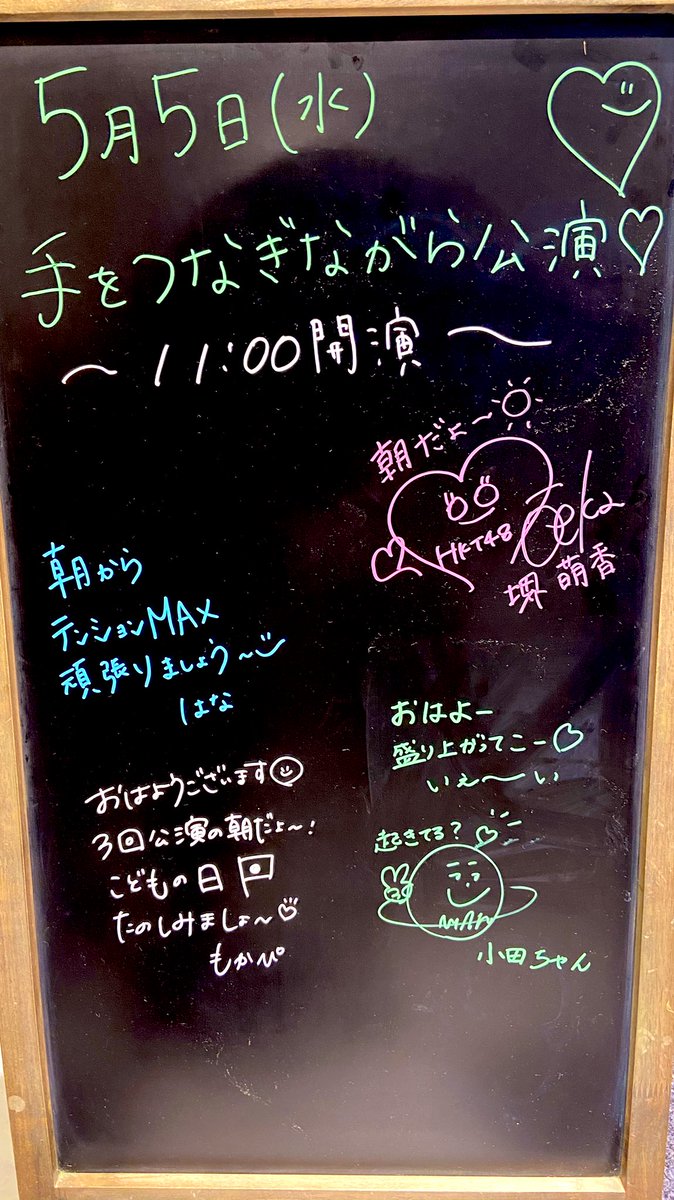 5月5日(水)
手をつなぎながら公演
〜11:00開演〜
朝だよ〜
HKT48
堺萌香
朝から
テンションMAX
頑張りましょう〜
はな
おはよー
盛り上がってこー
いぇ〜い
おはようございます
3回公演の朝だよ〜!
こどもの日
たのしみましょ〜
もかぴ
起きてる?
小田ちゃん